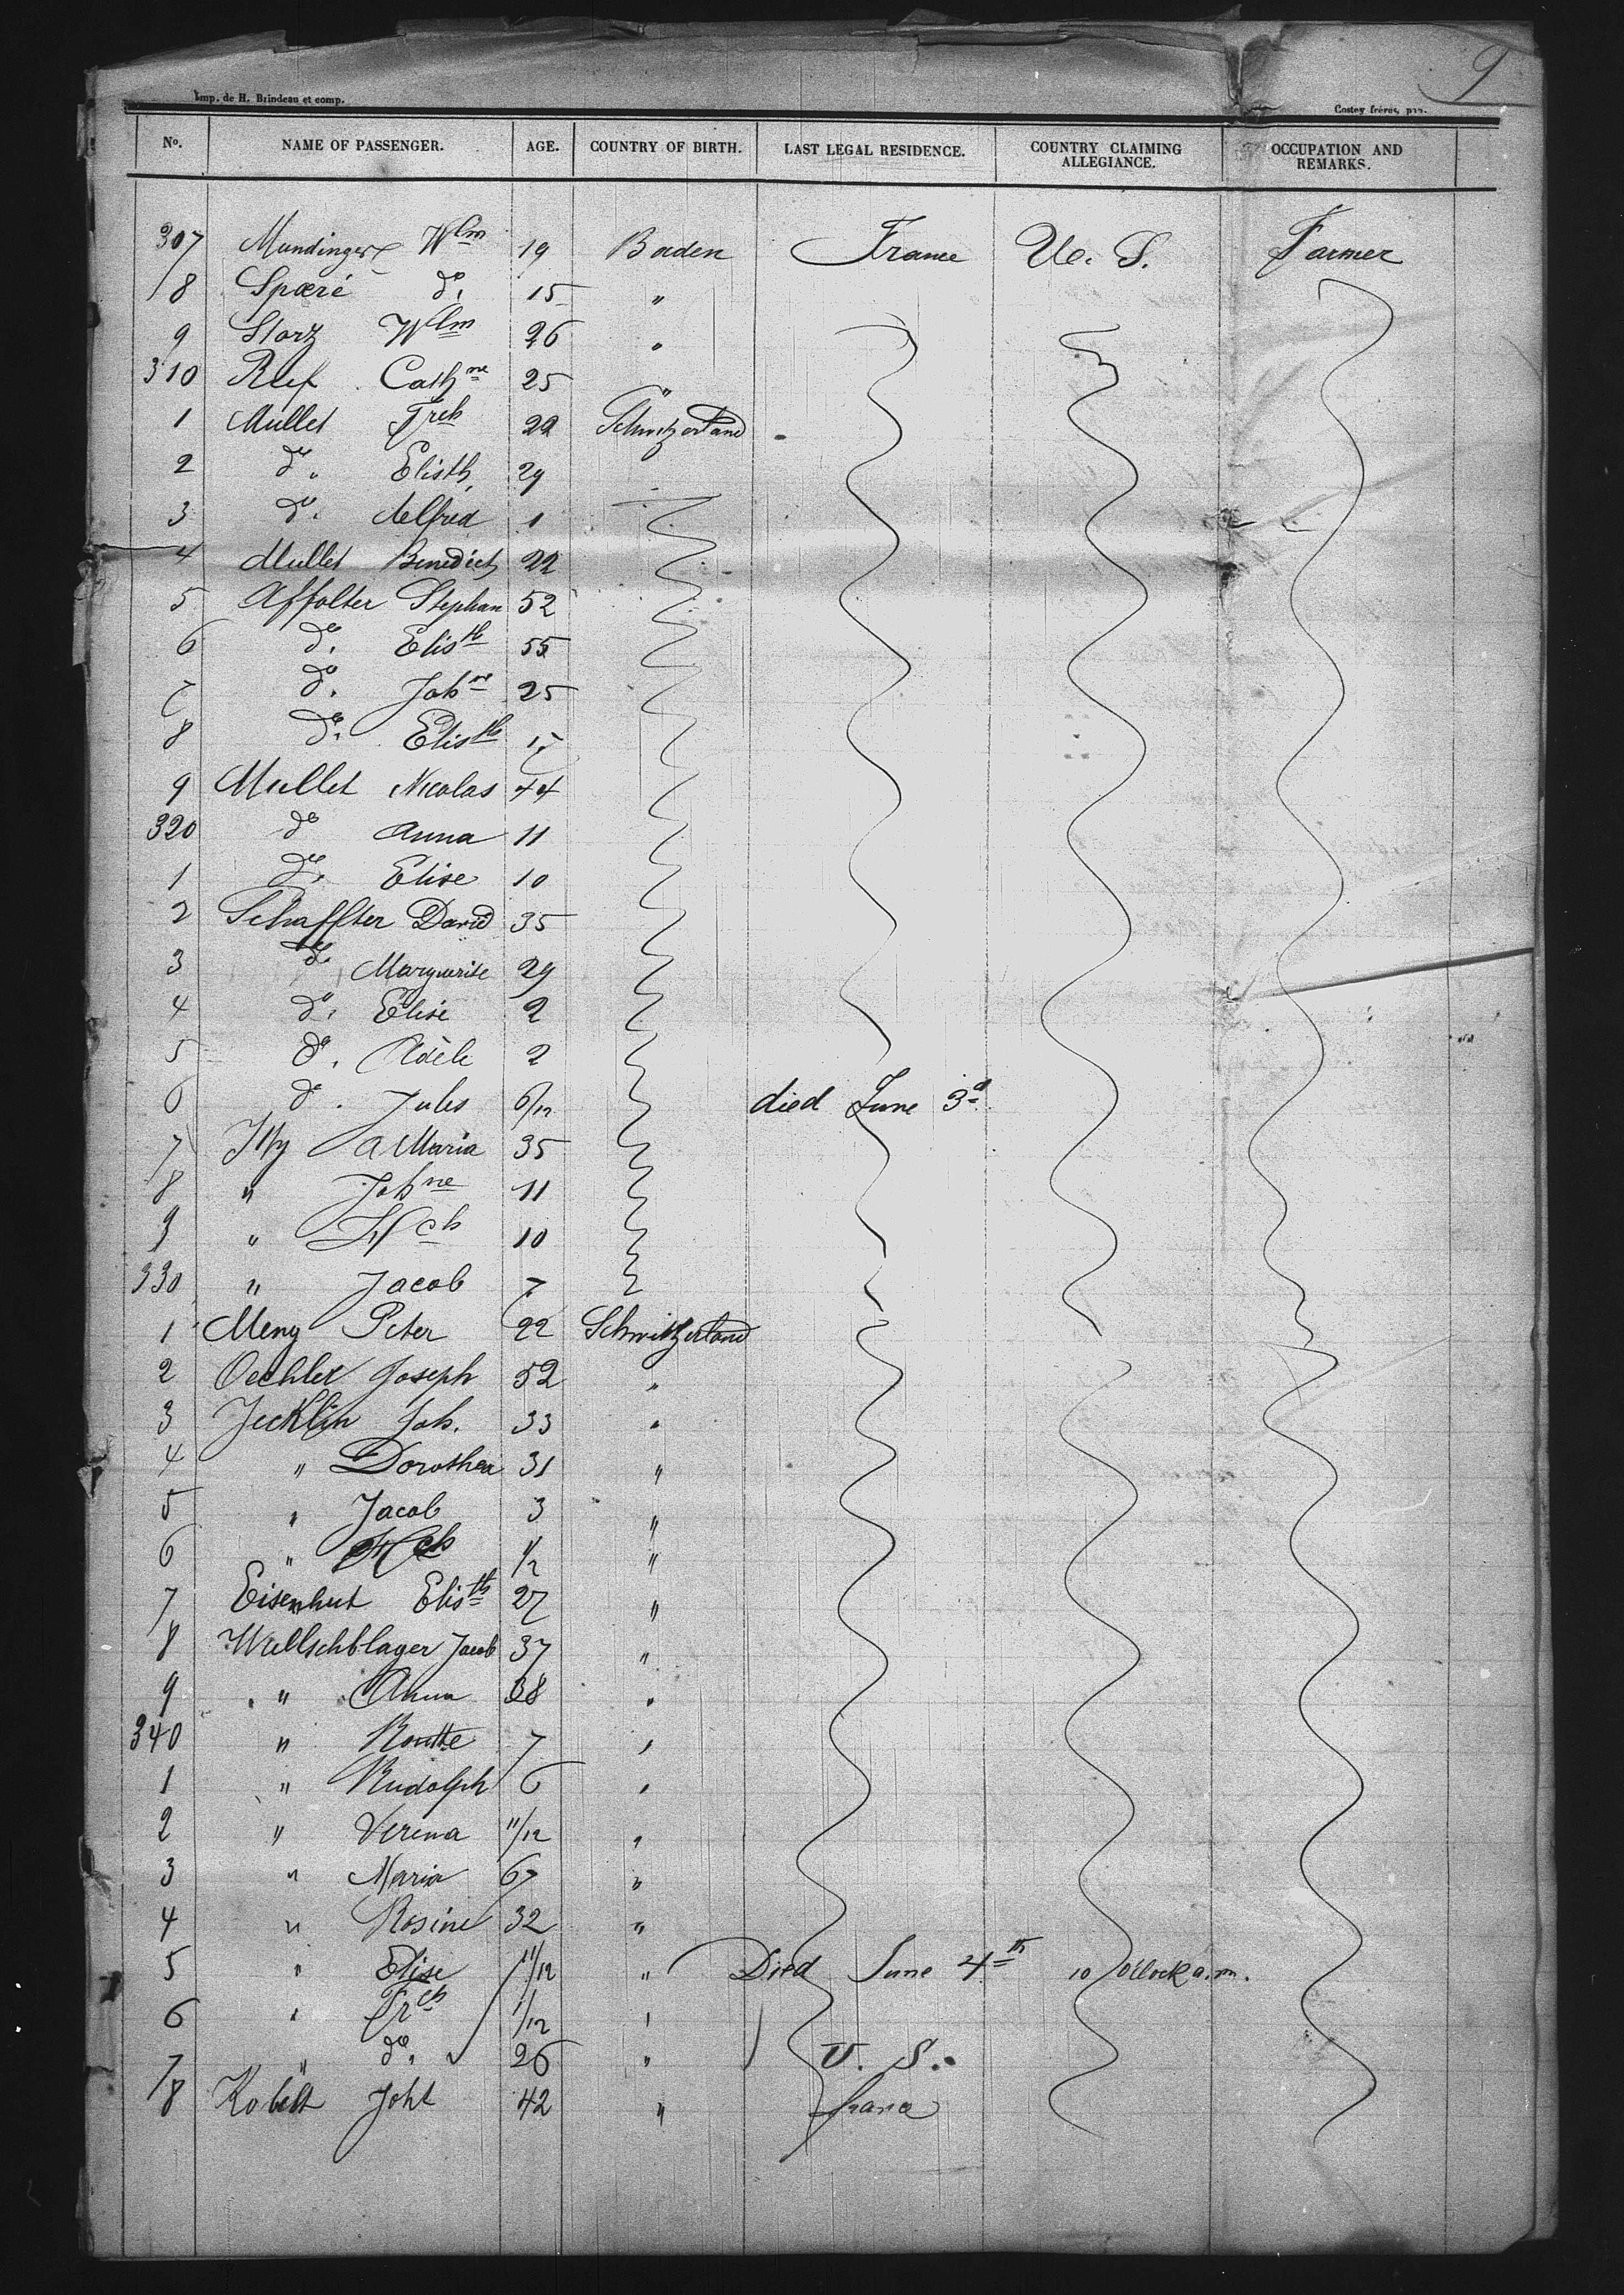 9
Imp. de H. Brindeau et comp.
Costey frères,
No. NAME OF PASSENGER. AGE. COUNTRY OF BIRTH. LAST LEGAL RESIDENCE. COUNTRY CLAIMING ALLEGIANCE. OCCUPATION AND REMARKS.
307 Mundinger Wlm 19 Baden France U. S. Farmer
8 Spæri do. 15 "
9 Storz Wlm 26 "
310 Ruf Cathne 25 "
1 Mullet Frch 22 Schwitzerland
2 do. Elisth 29
3 do. Alfred 1
4 Mullet Benedict 22
5 Affolter Stephan 52
6 do. Elisth 55
7 do. Johne 25
8 do. Elisth 17
9 Mullet Nicolas 44
320 do Anna 11
1 do. Elise 10
2 Schaffter David 35
3 do. Marguerite 29
4 do. Elise 2
5 do. Adèle 2
6 do. Jules 6/12 died June 3d
7 A Maria 35
8 " Johne 11
9 " 10
330 " Jacob 7
1 Meny Peter 22 Schwitzerland
2 Oechler Joseph 52 "
3 Jecklin Joh. 33 "
4 " Dorothea 31 "
5 " Jacob 3 "
6 " 1/2 "
7 Eisenhut Elisth 27 "
8 Wullschblager Jacob 37 "
9 " Anna 38 "
340 " 7 "
1 " Rudolph 6 "
2 " Verena 11/12 "
3 " Maria 67 "
4 " Rosine 32 "
5 " Elise 11/12 " Died June 4th 10 O'clock a.m.
6 " Frch 1/12 "
7 " do. 26 " U. S.
8 Kobelt Joht 42 " france